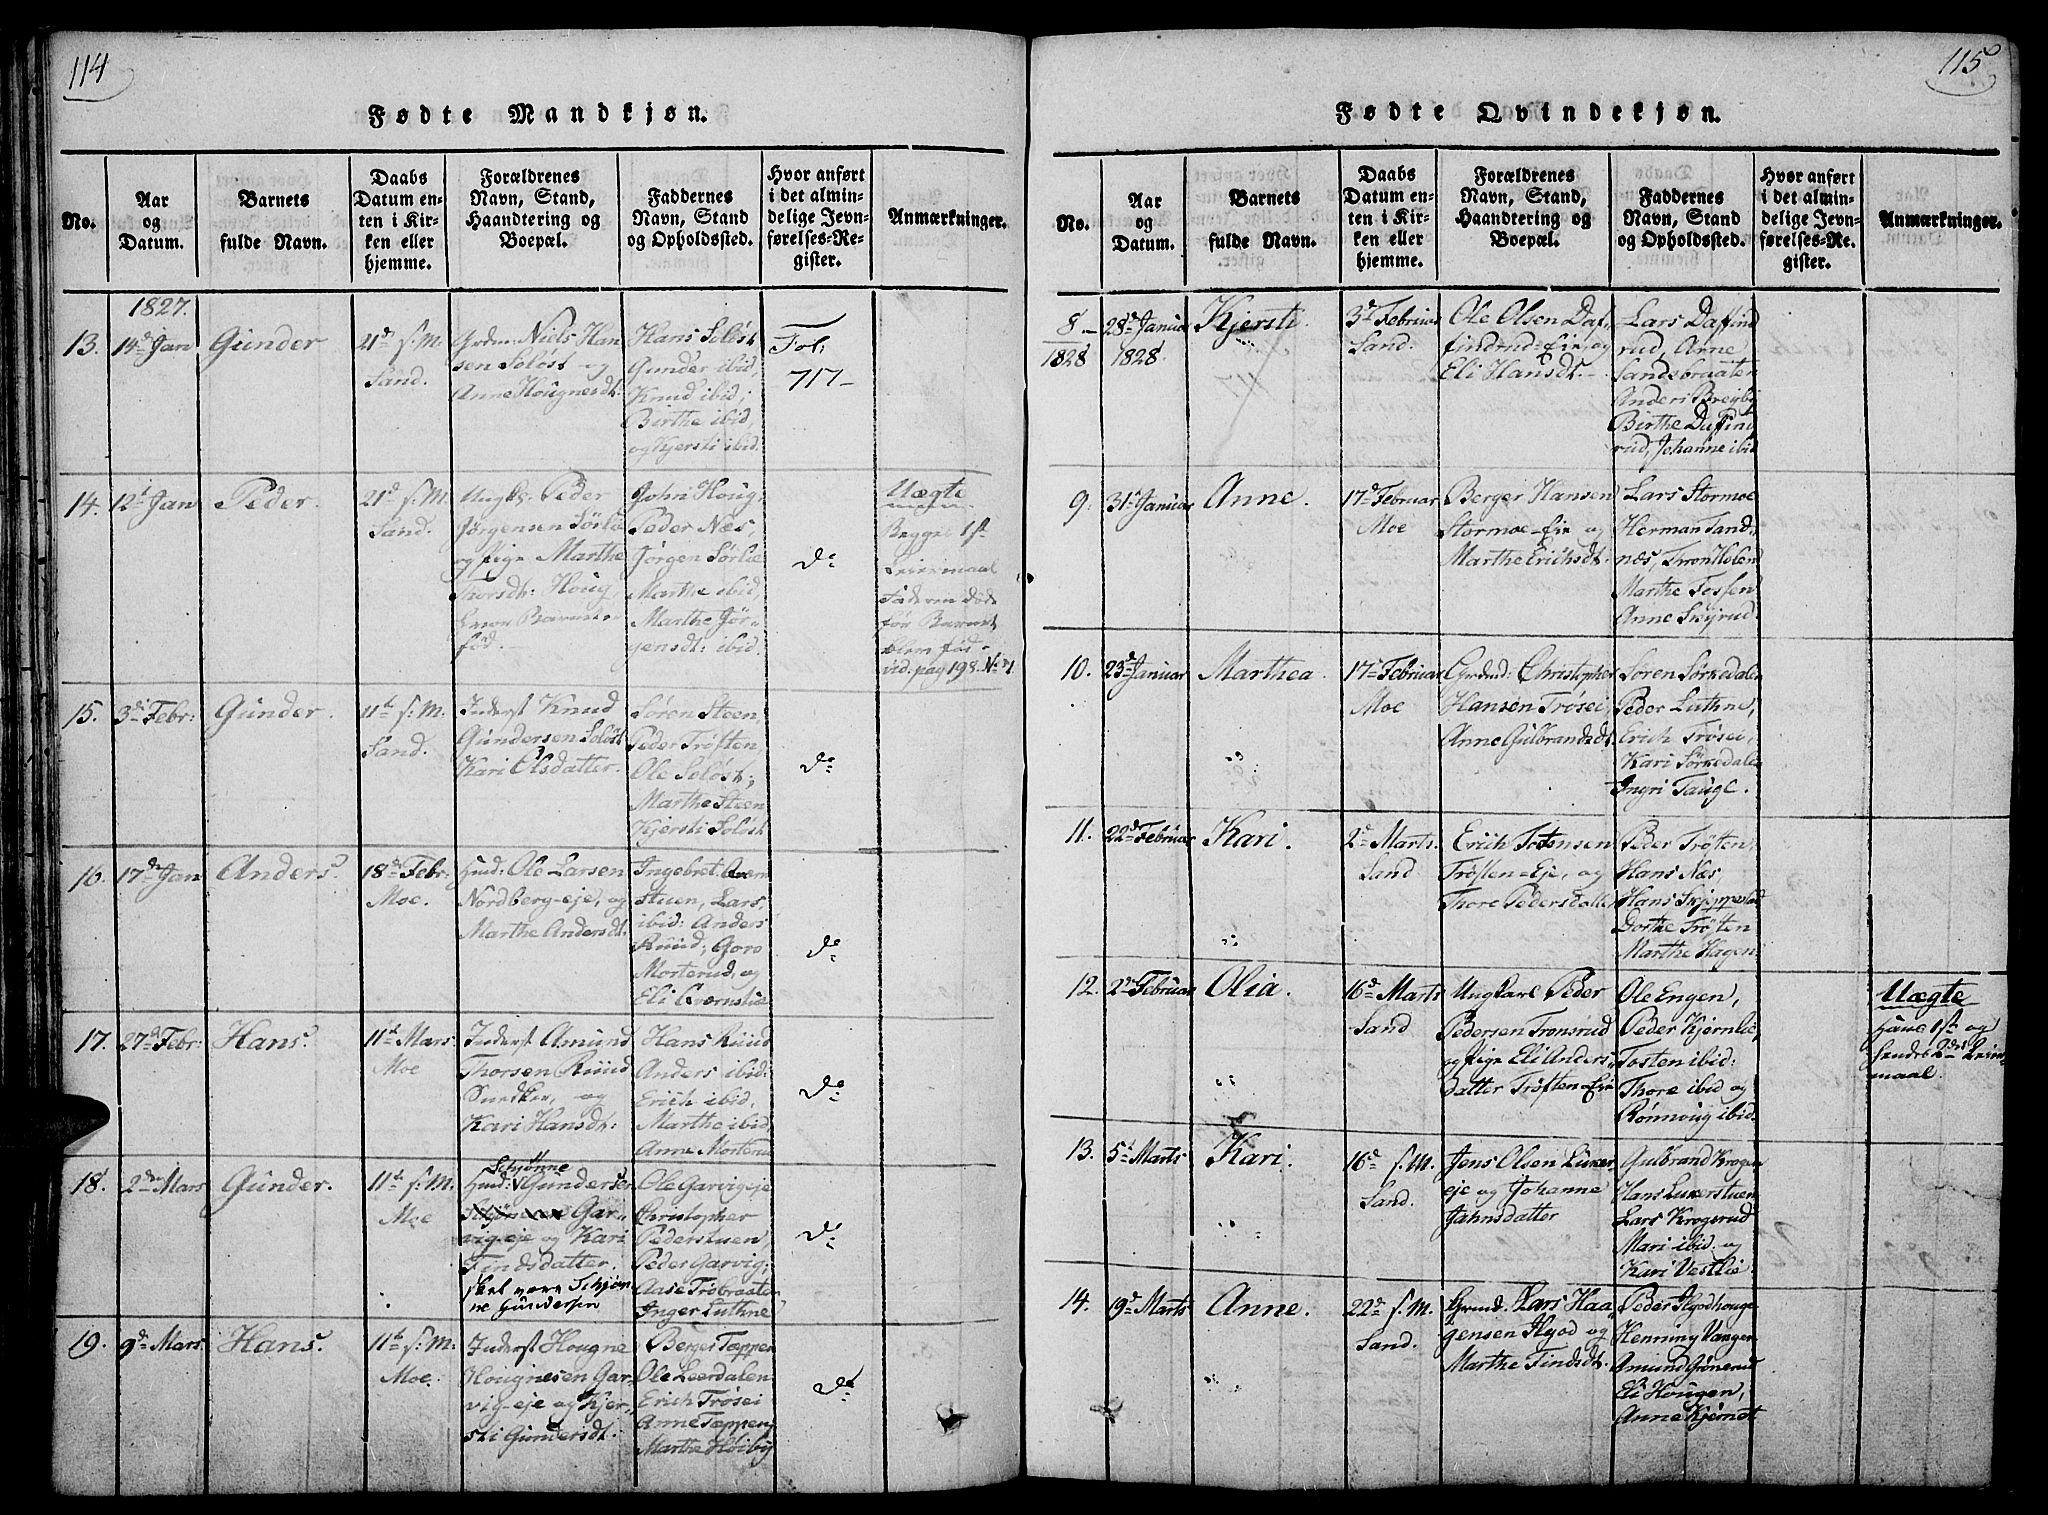 114
Fødte Mandkjøn.
No.
Aar
og
Datum.
Barnets
fulde Navn.
Daabs
Datum en-
ten i Kir-
ken eller
hjemme.
Forældrenes
Navn, Stand,
Haandtering og
Boepæl.
Faddernes
Navn, Stand
og Opholdssted.
Hvor anført
i det almin-
delige Jevn-
førelses-Re-
gister.
Anmærkninger.
1827.
13.
14d Jan
Gunder
21d s. M.
Sand.
Grdm: Niels Han
sen Soløst og
Anne Hougnesdt:
Hans Soløst
Gunder ibid,
Knud ibid,
Birthe ibid,
og Kjersti ibid.
Fol:
717-
14.
12t Jan
Peder.
21d s. M.
Sand.
Ungk: Peder
Jørgensen Sørlie
og Pige Marthe
Thorsdt: Houg,
fød.
John Houg,
Peder Næs,
Jørgen Sørlie
Marthe ibid,
Marthe Jør-
gensdt: ibid.
do
Uægte
Begges 1st
Leiermaal
Faderen døde
før Barnet
blev fød-
vid. pag 198. No 1
15.
3di Febr:
Gunder.
11te s: M.
Sand.
Inderst Knud
Gundersen Soløst
Kari Olsdatter.
Søren Steen,
Peder Trøften,
Ole Soløst,
Marthe Steen
Kjersti Soløst
do
16.
17de Jan
Anders.
18de Febr:
Moe.
Huusd: Ole Larsen
Nordberg-eje, og
Marthe Andersdt.
Ingebret Qværn
stuen, Lars,
ibid: Anders
Ruud, Goro
Morterud, og
Eli Qværnstue
do
17.
27de Febr:
Hans.
11te Mars
Moe
Inderst Amund
Thorsen Ruud
Snedker, og
Kari Hansdt:
Hans Ruud
Anders ibid:
Erich ibid,
Marthe ibid,
Anne Morterud
do
18.
2den Mars
Gunder.
11te s: M.
Moe
Schjønne
Huusd: Gundersen
Gar-
vig-eje og Kari
Findsdatter.
skal være Schjøn-
ne Gundersen
Ole Garvigeje
Christopher
Pederstuen,
Peder Garvig,
Aase Trøbraaten
Inger Luthne
do
19.
9de Mars.
Hans.
11te s: M.
Moe.
Inderst Hougne
Hougnesen Gar-
vig-eje og Kjer-
sti Gundersdt.
Berger Tæppen
Ole Leerdalen
Erich Trøsei
Anne Tæppen,
Marthe Høiby
do
115
Fødte Qvindekjøn.
No.
Aar
og
Datum.
Barnets
fulde Navn.
Daabs
Datum en-
ten i Kir-
ken eller
hjemme.
Forældrenes
Navn, Stand,
Haandtering og
Boepæl.
Faddernes
Navn, Stand
og Opholdssted.
Hvor anført
i det almin-
delige Jevn-
førelses-Re-
gister.
Anmærkninger.
8.
1828
28de Januar
1828.
Kjersti.
3d Februar
Sand.
Ole Olsen Daf-
findrud-Eie, og
Eli Hansdt.
Lars Daffind
rud, Arne
Sandsbraaten
Anders Bregby
Birthe Daffind
rud, Johanne ibid
9.
31te Januar
Anne.
17de Februar
Moe
Berger Hansen
Stormoe-Eie og
Marthe Erichsdt.
Lars Stormoe
Herman Sand-
næs, Thron Holen
Marthe Fossen
Anne Skyrud.
10.
23de Januar
Marthea.
17de Februar
Moe
Grdmd: Christopher
Hansen Trøsei,
Anne Gulbrandsdt.
Søren Sørkedalen
Peder Luthne,
Erich Trøsei,
Kari Sørkedalen
Ingri Taugle.
11.
22de Februar
Kari.
2d Marts.
Sand
Erich Tostensen
Trøften-Eje, og
Thore Pedersdatter
Peder Trøften,
Hans Næs,
Hans Skjeppestad
Dorthe Trøften
Marthe Hagen
12.
2den Februar
Olia.
16d Marts
Sand
Ungkarl Peder
Pedersen Tronsrud
og Pige Eli Anders-
datter Trøften-Eie
Ole Engen,
Peder Kjernlie
Tosten ibid:
Thore ibid og
Rønnoug ibid.
Uægte
Hans 1st og
hendes 2det Leier
maal.
13.
5t Marts
Kari.
16d s. M.
Sand.
Jens Olsen Luker
eje og Johanne
Jahnsdatter
Gulbrand Krogen
Hans Lukerstuen
Lars Krogsrud
Mari ibid: og
Kari Vestlie
14.
19d Marts
Anne.
22d s. M.
Sand.
Grmd: Lars Haa-
gensen Hgod og
Marthe Findsdt.
Peder Hgodhouge
Henning Vangen
Amund Grønerud
Eli Hougen,
Anne Kjerndt